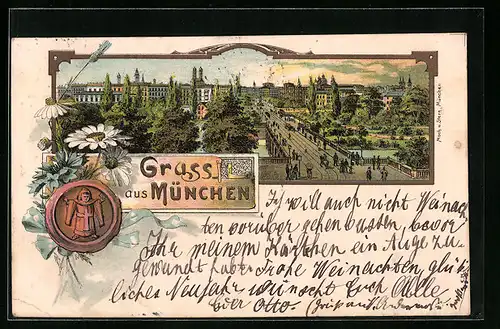 Gruss
aus MÜNCHEN
Moch u. Stern, München
Ich will auch nicht Weinach
ten vorüber gehen lassen, bevor
Ihr meinem Kärtchen ein Auge zu
gewandt habt. Frohe Weinachten, glük
liches Neujahr wünscht Euch Alle
Otto.